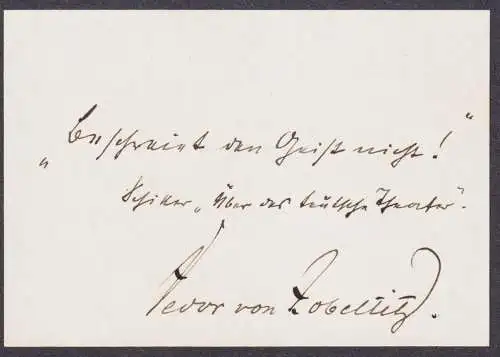 „Beschreiet den Geist nicht!"
Schiller „Über das teutsche Theater".
Fedor von Zobeltitz.